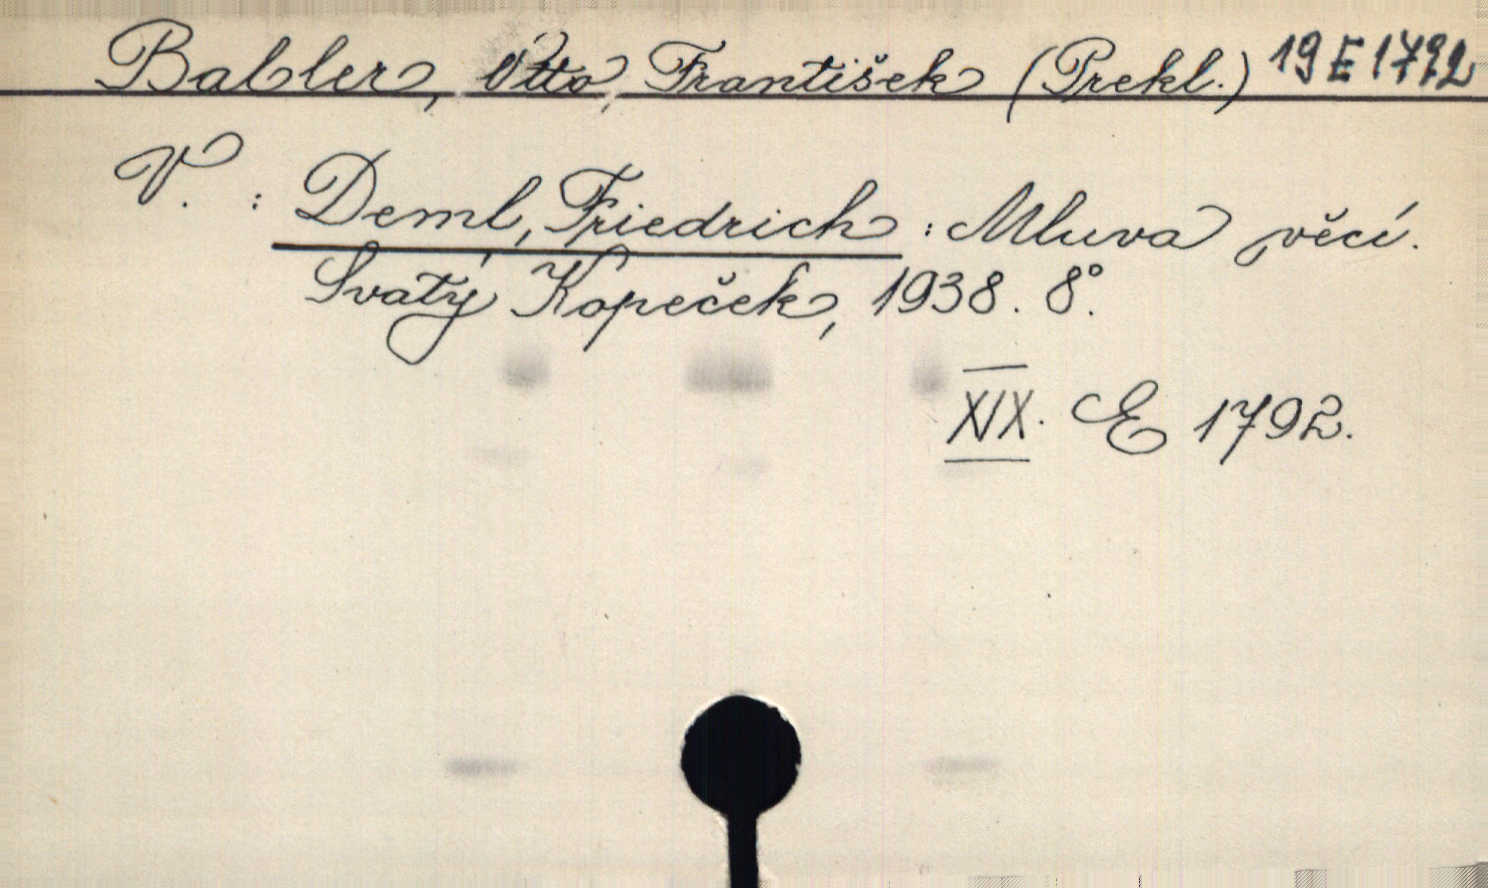 Babler, Otto František (Prekl.) 19E1792
V. : Deml, Friedrich : Mluva věcí.
Svatý Kopeček, 1938. 8°.
XIX. E 1792.